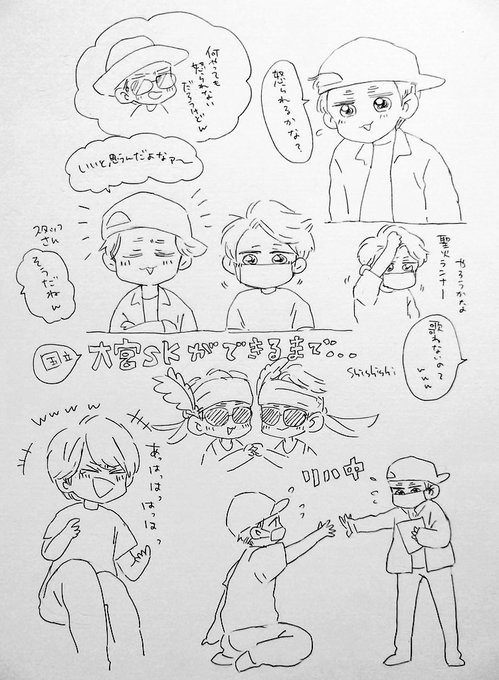 怒られるかな?
何やっても
怒られない
だろうけどw
いいと思うんだよなァ〜
スタッフ
さん
そうだねw
やろうかな
聖火ランナー
歌わないので
www
国立
大宮SKができるまで…
Shishishi
wwww
あっはっはっ
はっはっ
リハ中